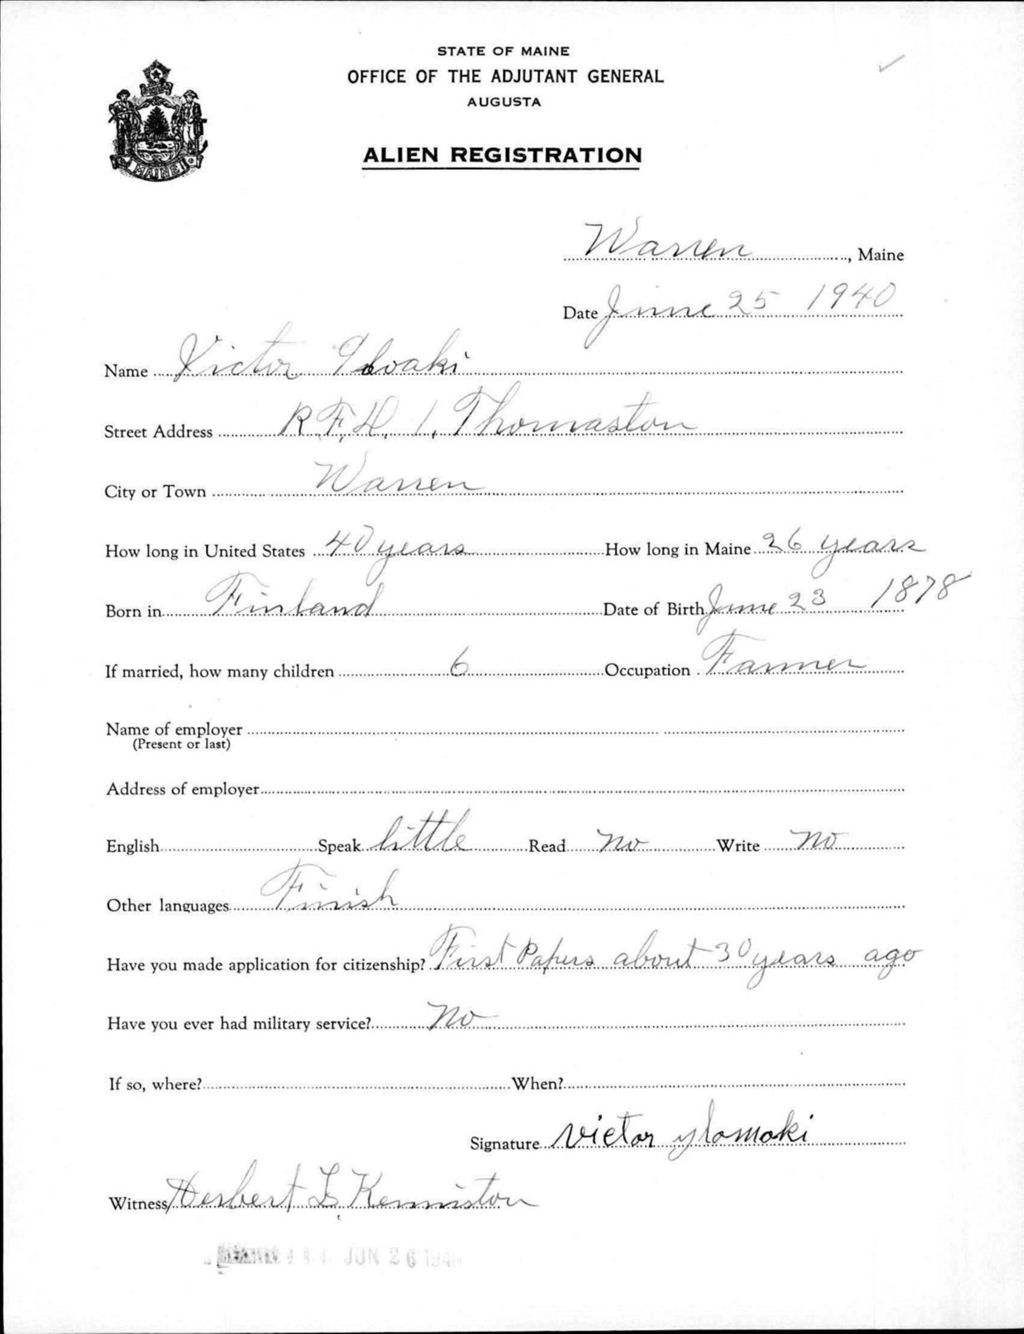 STATE OF MAINE
OFFICE OF THE ADJUTANT GENERAL
AUGUSTA
ALIEN REGISTRATION
MAINE
Warren, Maine
Date June 25 1940
Name Victor
Street Address R.F.D. 1, Thomaston
City or Town Warren
How long in United States 40 years How long in Maine 26 years
Born in Finland Date of Birth June 23 1878
If married, how many children 6 Occupation Farmer
Name of employer
(Present or last)
Address of employer
English Speak little Read no Write no
Other languages Finish
Have you made application for citizenship? First Papers about 30 years ago
Have you ever had military service? No
If so, where? When?
Signature victor ylomoki
Witness Herbert L Kenniston
JUN 26 1940